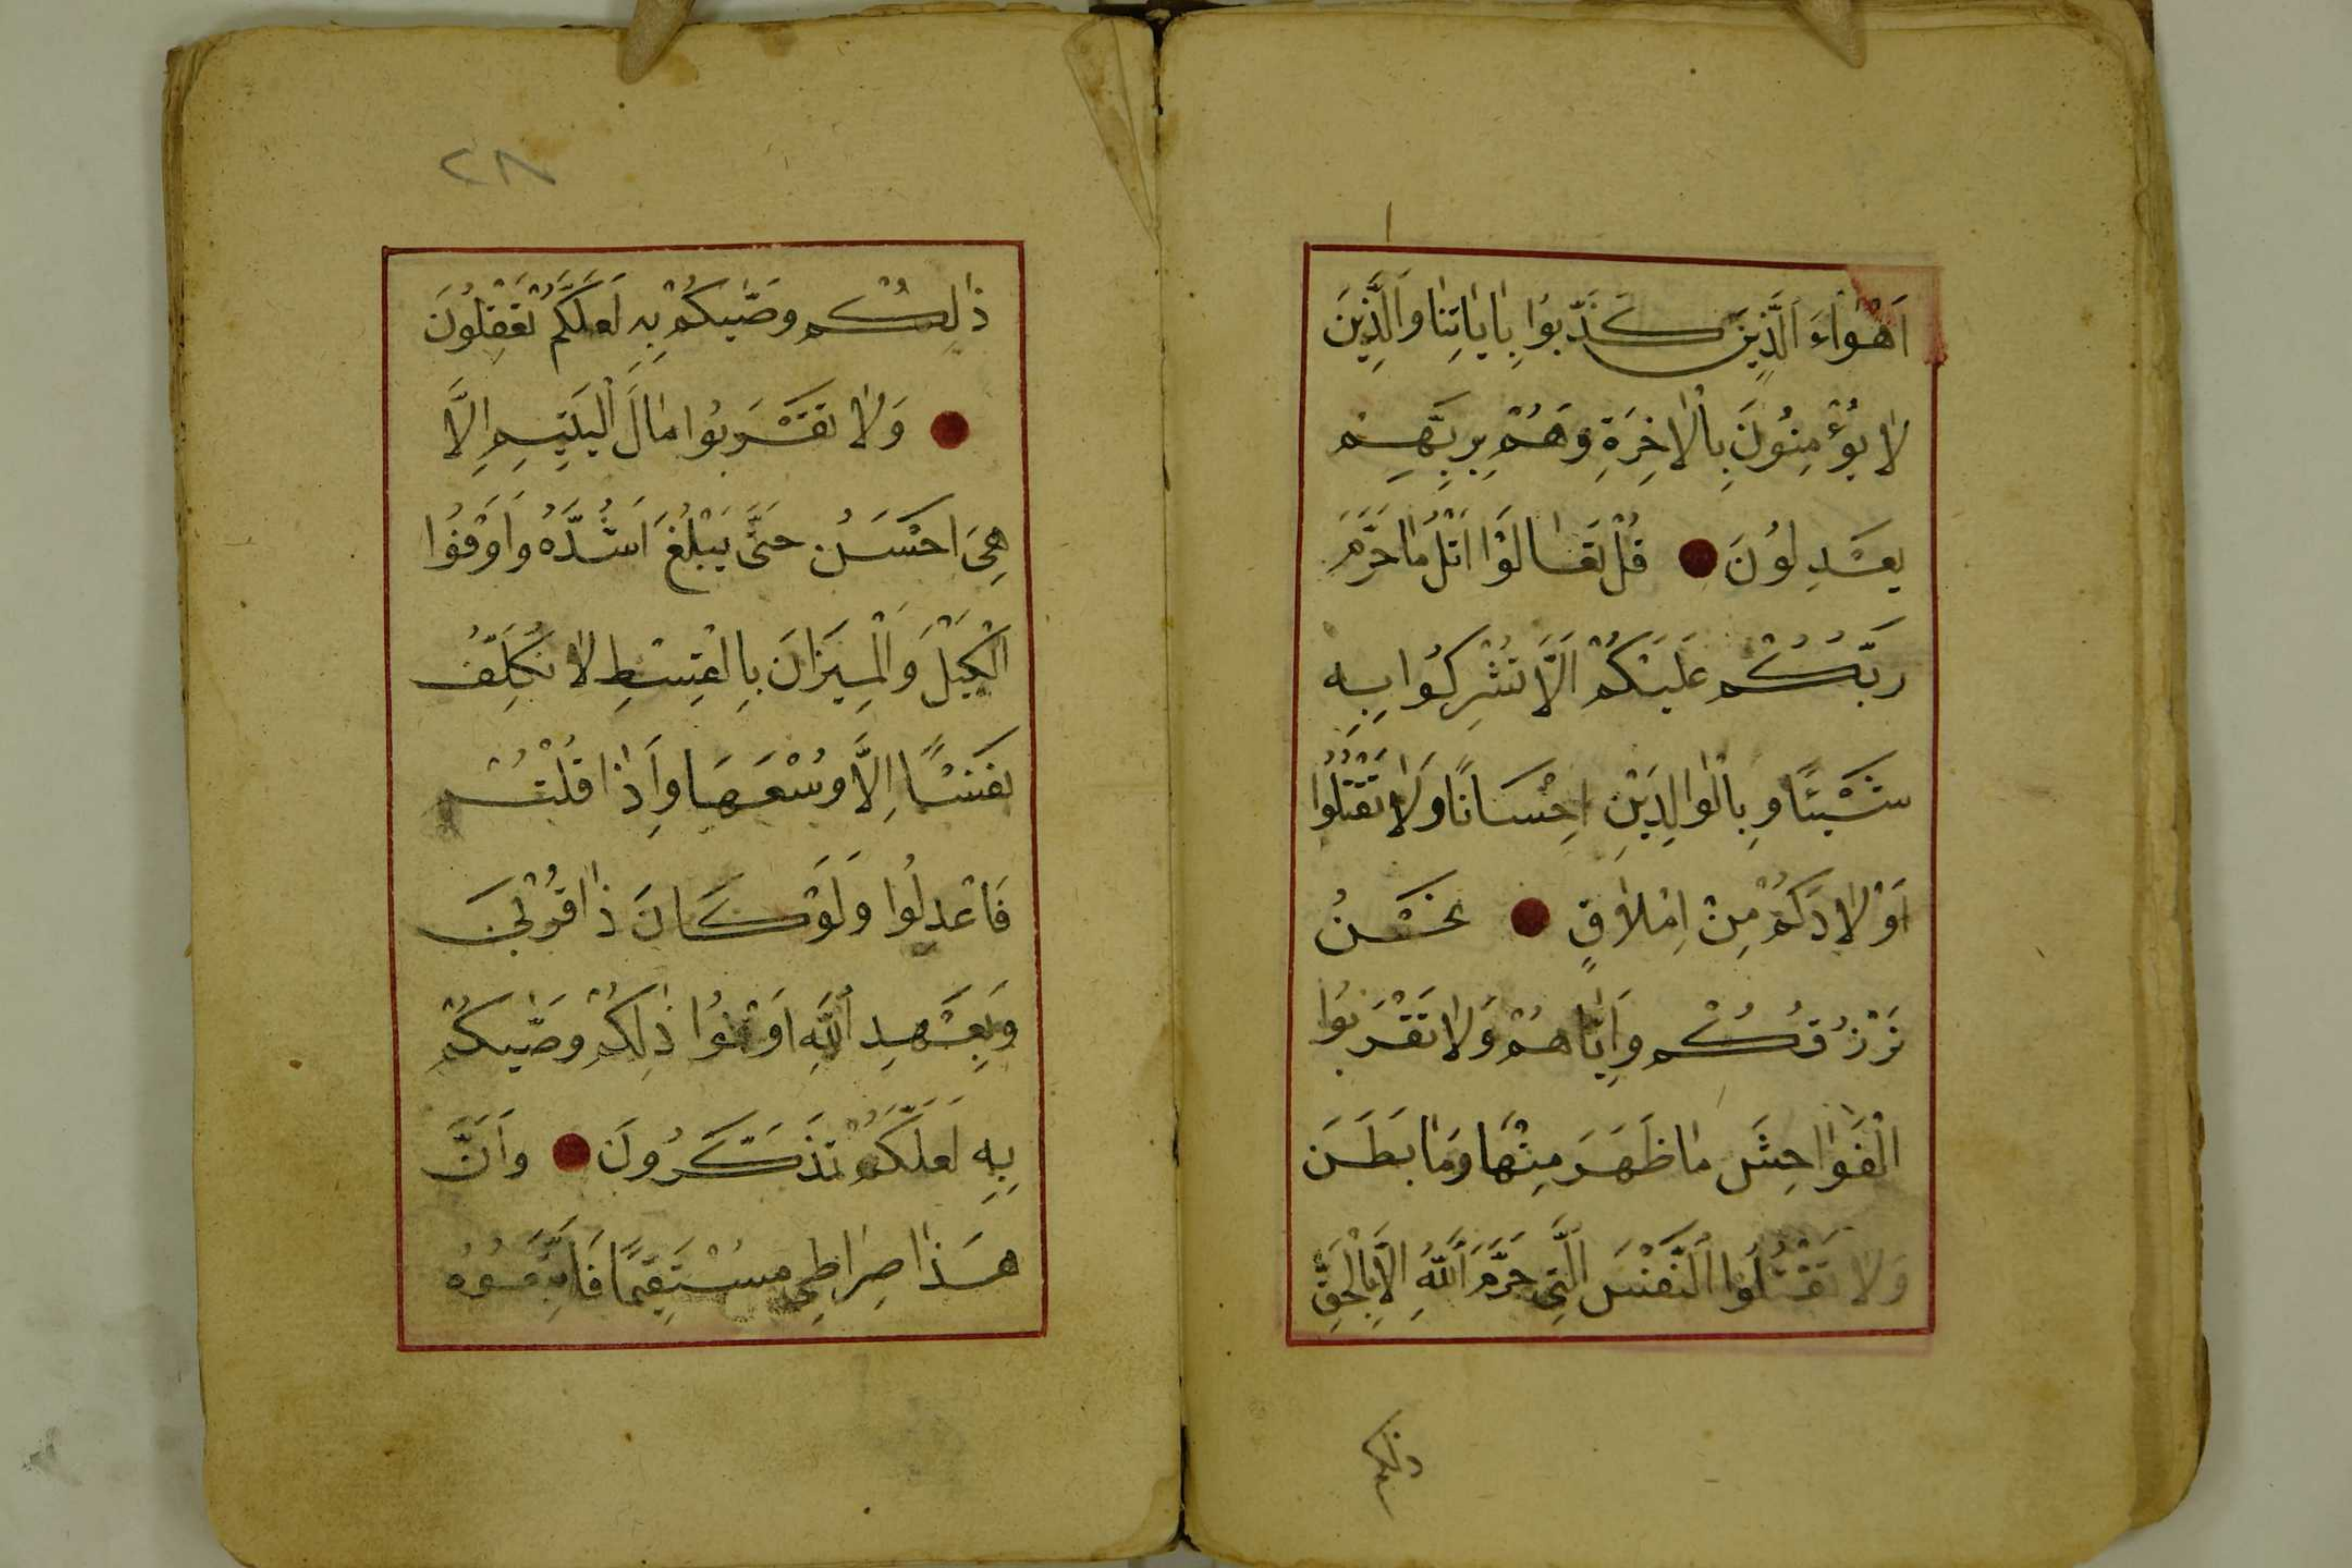 اَهْوَاءَ الَّذِينَ كَذَّبُوا بِاٰيَاتِنَا وَالَّذِينَ
لَا يُؤْمِنُونَ بِالْاٰخِرَةِ وَهُمْ بِرَبِّهِمْ
يَعْدِلُونَ قُلْ تَعَالَوْا اَتْلُ مَا حَرَّمَ
رَبُّكُمْ عَلَيْكُمْ اَلَّا تُشْرِكُوا بِهِ
شَيْئًا وَبِالْوَالِدَيْنِ اِحْسَانًا وَلَا تَقْتُلُوا
اَوْلَادَكُمْ مِنْ اِمْلَاقٍ نَحْنُ
نَرْزُقُكُمْ وَاِيَّاهُمْ وَلَا تَقْرَبُوا
الْفَوَاحِشَ مَا ظَهَرَ مِنْهَا وَمَا بَطَنَ
وَلَا تَقْتُلُوا النَّفْسَ الَّتِي حَرَّمَ اللّٰهُ اِلَّا بِالْحَقِّ
ذلكم
٢٨
ذٰلِكُمْ وَصّٰيكُمْ بِهِ لَعَلَّكُمْ تَعْقِلُونَ
وَلَا تَقْرَبُوا مَالَ الْيَتِيمِ اِلَّا
هِيَ اَحْسَنُ حَتَّى يَبْلُغَ اَشُدَّهُ وَاَوْفُوا
الْكَيْلَ وَالْمِيزَانَ بِالْقِسْطِ لَا نُكَلِّفُ
نَفْسًا اِلَّا وُسْعَهَا وَاِذَا قُلْتُمْ
فَاعْدِلُوا وَلَوْ كَانَ ذَا قُرْبَى
وَبِعَهْدِ اللّٰهِ اَوْفُوا ذٰلِكُمْ وَصّٰيكُمْ
بِهِ لَعَلَّكُمْ تَذَكَّرُونَ وَاَنَّ
هَذَا صِرَاطِي مُسْتَقِيمًا فَاتَّبِعُوهُ